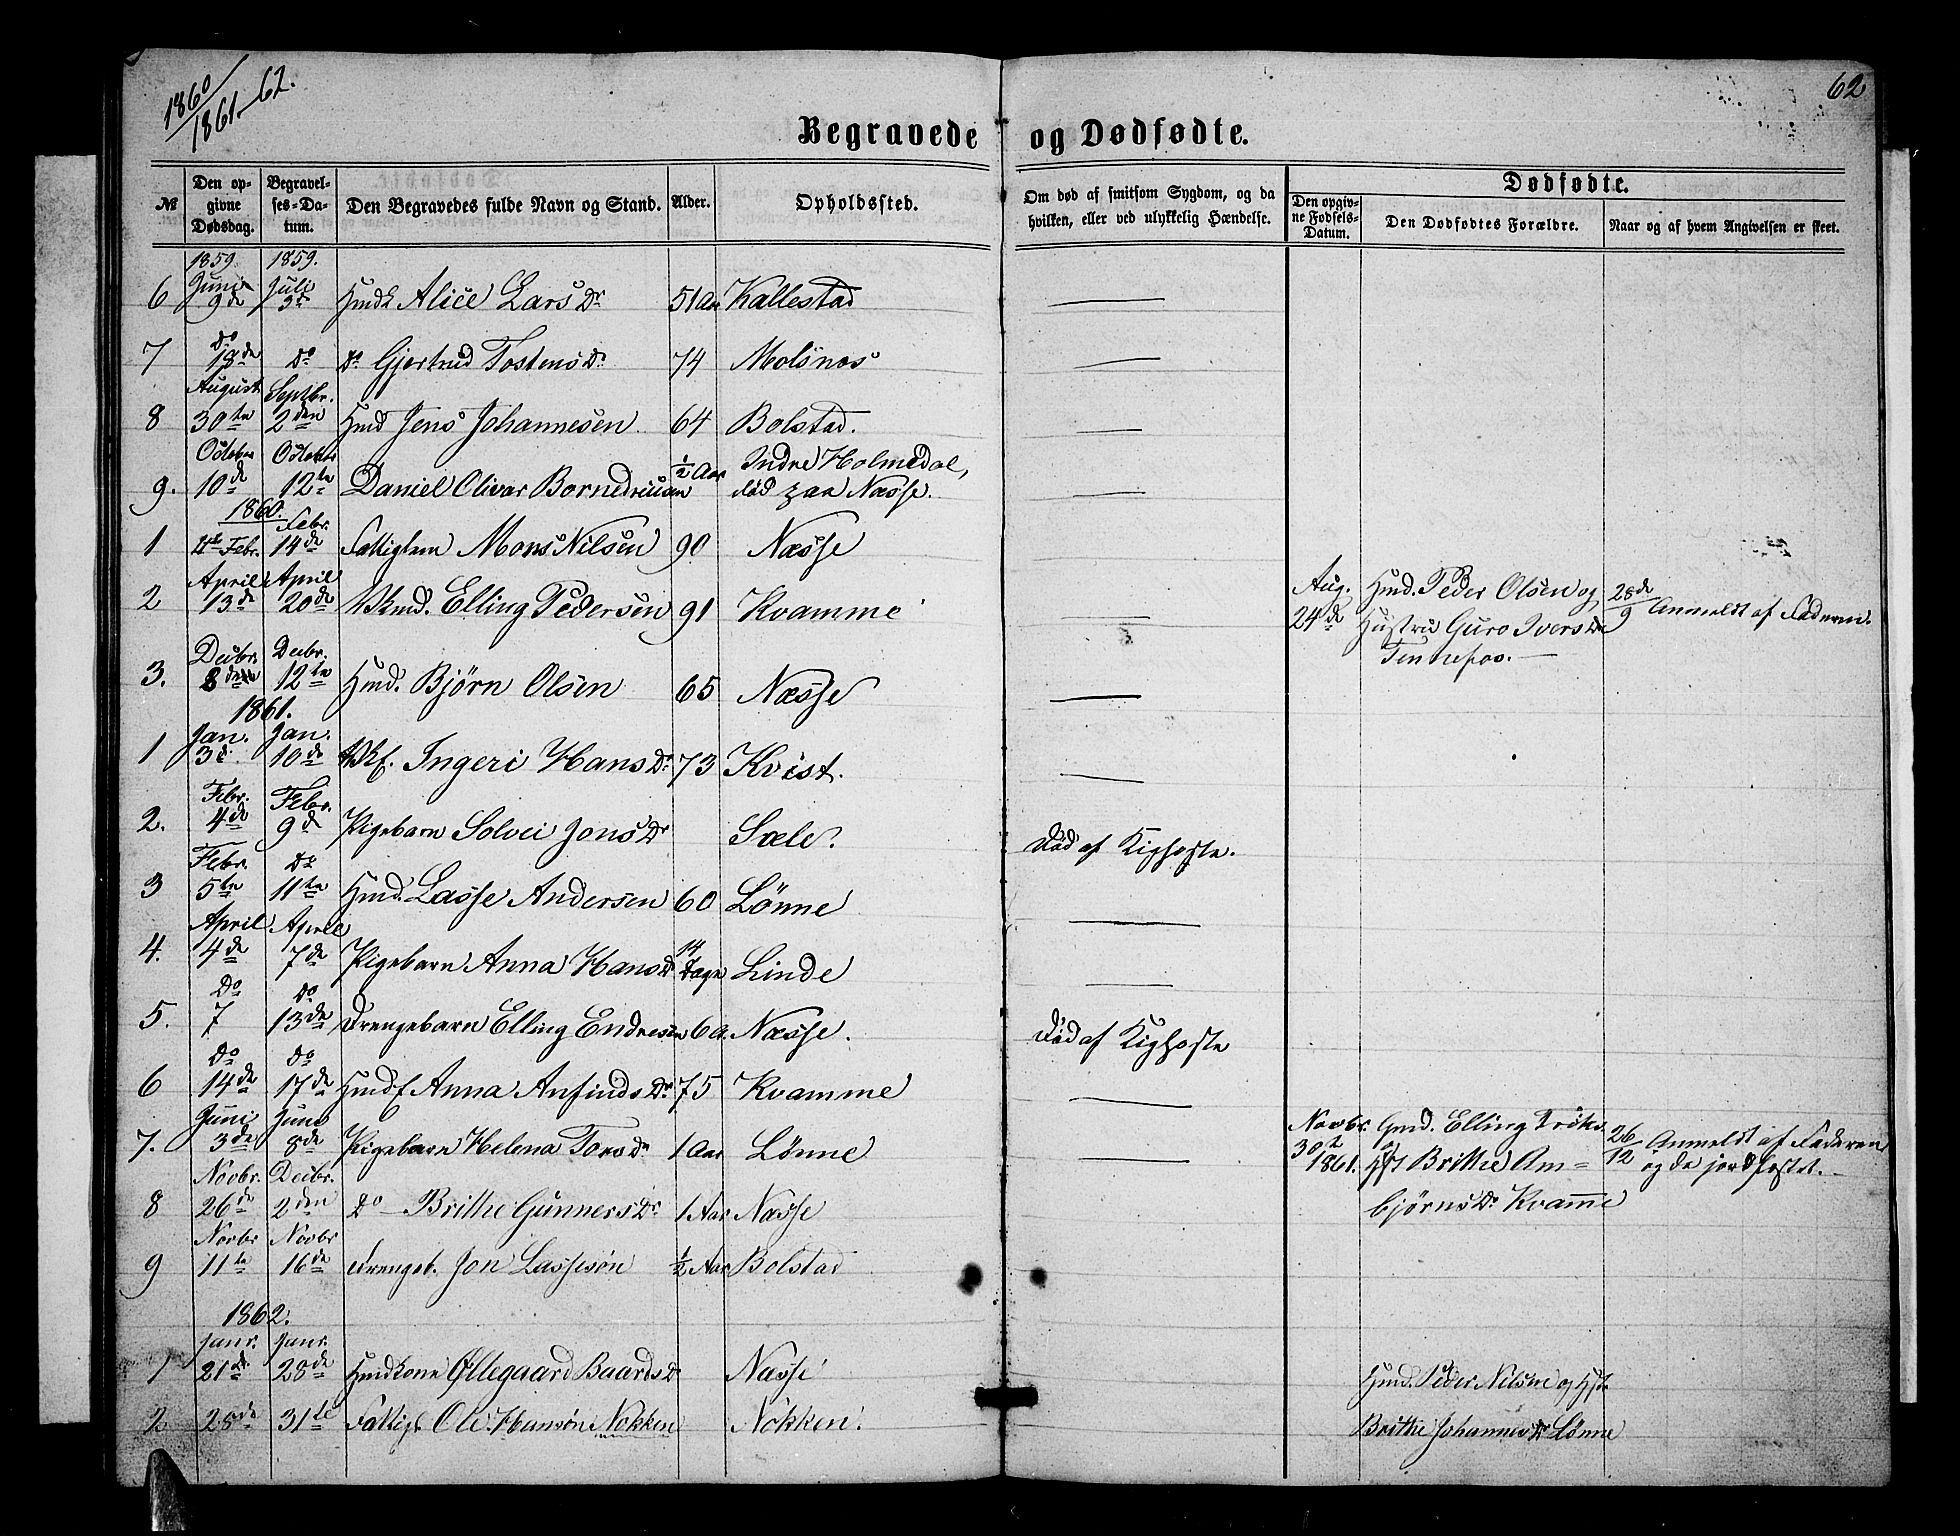 1860/1861-62.
62
Begravede og Dødfødte.
№ Den opgivne Dødsdag. Begravelses-Datum. Den Begravedes fulde Navn og Stand. Alder. Opholdssted. Om død af smitsom Sygdom, og da hvilken, eller ved ulykkelig Hændelse. Dødfødte.
Den opgivne Fødsels-Datum. Den Dødfødtes Forældre. Naar og af hvem Angivelsen er skeet.
1859. 1859.
6 Juni 9de Juli 3die Hmdk Alice LarsDr 51 Aar Kallestad
7 Do 18de Do Do Gjertrud TostensDr 74 Molsnæs
8 August 30te Septbr. 2den Hmd Jens Johannesen 64 Bolstad.
9. October 10de October 12te Daniel Olivar Bornedriusen ½ Aar Indre Holmedal, død paa Næsse.
1860.
1 4de Febr. Febr. 14de Fattiglem Mons Nilsen 90 Næsse
2 April 13de April 20de Kmd. Elling Pedersen 91 Kvamme
Aug. 24de Hmd. Peder Olsen og
Hustru Guro IversDr
Tennefos.
28de/9 Anmeldt af Faderen.
3. Decbr. 8de Decbr. 12te Hmd. Bjørn Olsen 65 Næsse
1861.
1 Jan. 3d. Jan. 10de Kf. Ingeri HansDr 73 Kvist.
2. Febr. 4de Febr. 9d Pigebarn Solvei JonsDr Sæle. Død af Kighoste.
3 Febr. 5te Do 11te Hmd. Lasse Andersen 60 Lønne
4. April 4de April 7de Pigebarn Anna HansD 14 Dage Linde
5. Do 7 Do 13de Drengebarn Elling Endresen 6 a. Næsse. Død af Kighoste
6 Do 14de Do 17de Hmdf Anna AnfindsDr 75 Kvamme
7. Juni 3de Juni 8de Pigebarn Helena TorsDr 1 Aar Lønne
Novbr. 30te 1861. Gmd. Elling
Hst Brithe Am=
bjørnsDr Kvamme
26/12 Anmeldt af Faderen
og da jordfæstet.
8 Novbr. 26de Decbr. 2den Do Brithe GunnersDr 1 Aar Næsse
9 Novbr 11te Novbr 16de Drengeb. Jon Lassesøn ½ Aar Bolstad
1862.
1 Janr. 21de Janr. 28de Hmdkone Øllegaard BaardsDr Næsse
2. 28de 31te Fattigl Ole Hansøn Nokken Nokken.
Hmd. Peder Nilsen og Hst.
Brithe JohannesDr Lønne